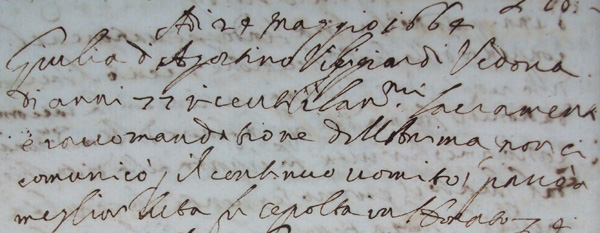 Adi 24 Maggio 1664
Giulia d Agostino Vedova
di anni 77 li santmi sacramenti
e raccomandatione dell Anima non si
comunicò p il continuo vomito, passò a
meglior vita fu sepolta in